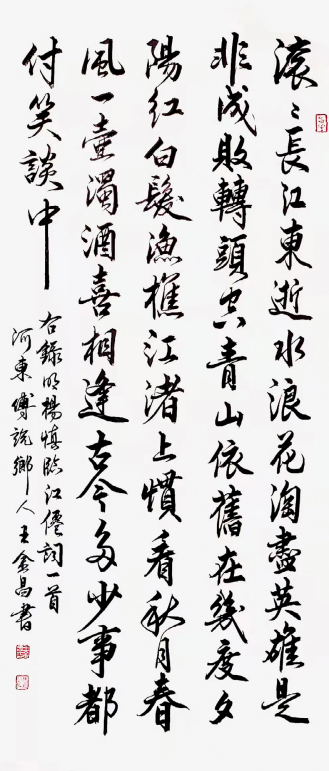 滚〻長江東逝水浪花淘盡英雄是
非成敗轉頭空青山依舊在幾度夕
陽紅白髮漁樵江渚上慣看秋月春
風一壺濁酒喜相逢古今多少事都
付笑談中
右錄明楊慎臨江僊詞一首
河東傅説鄉人王金昌書